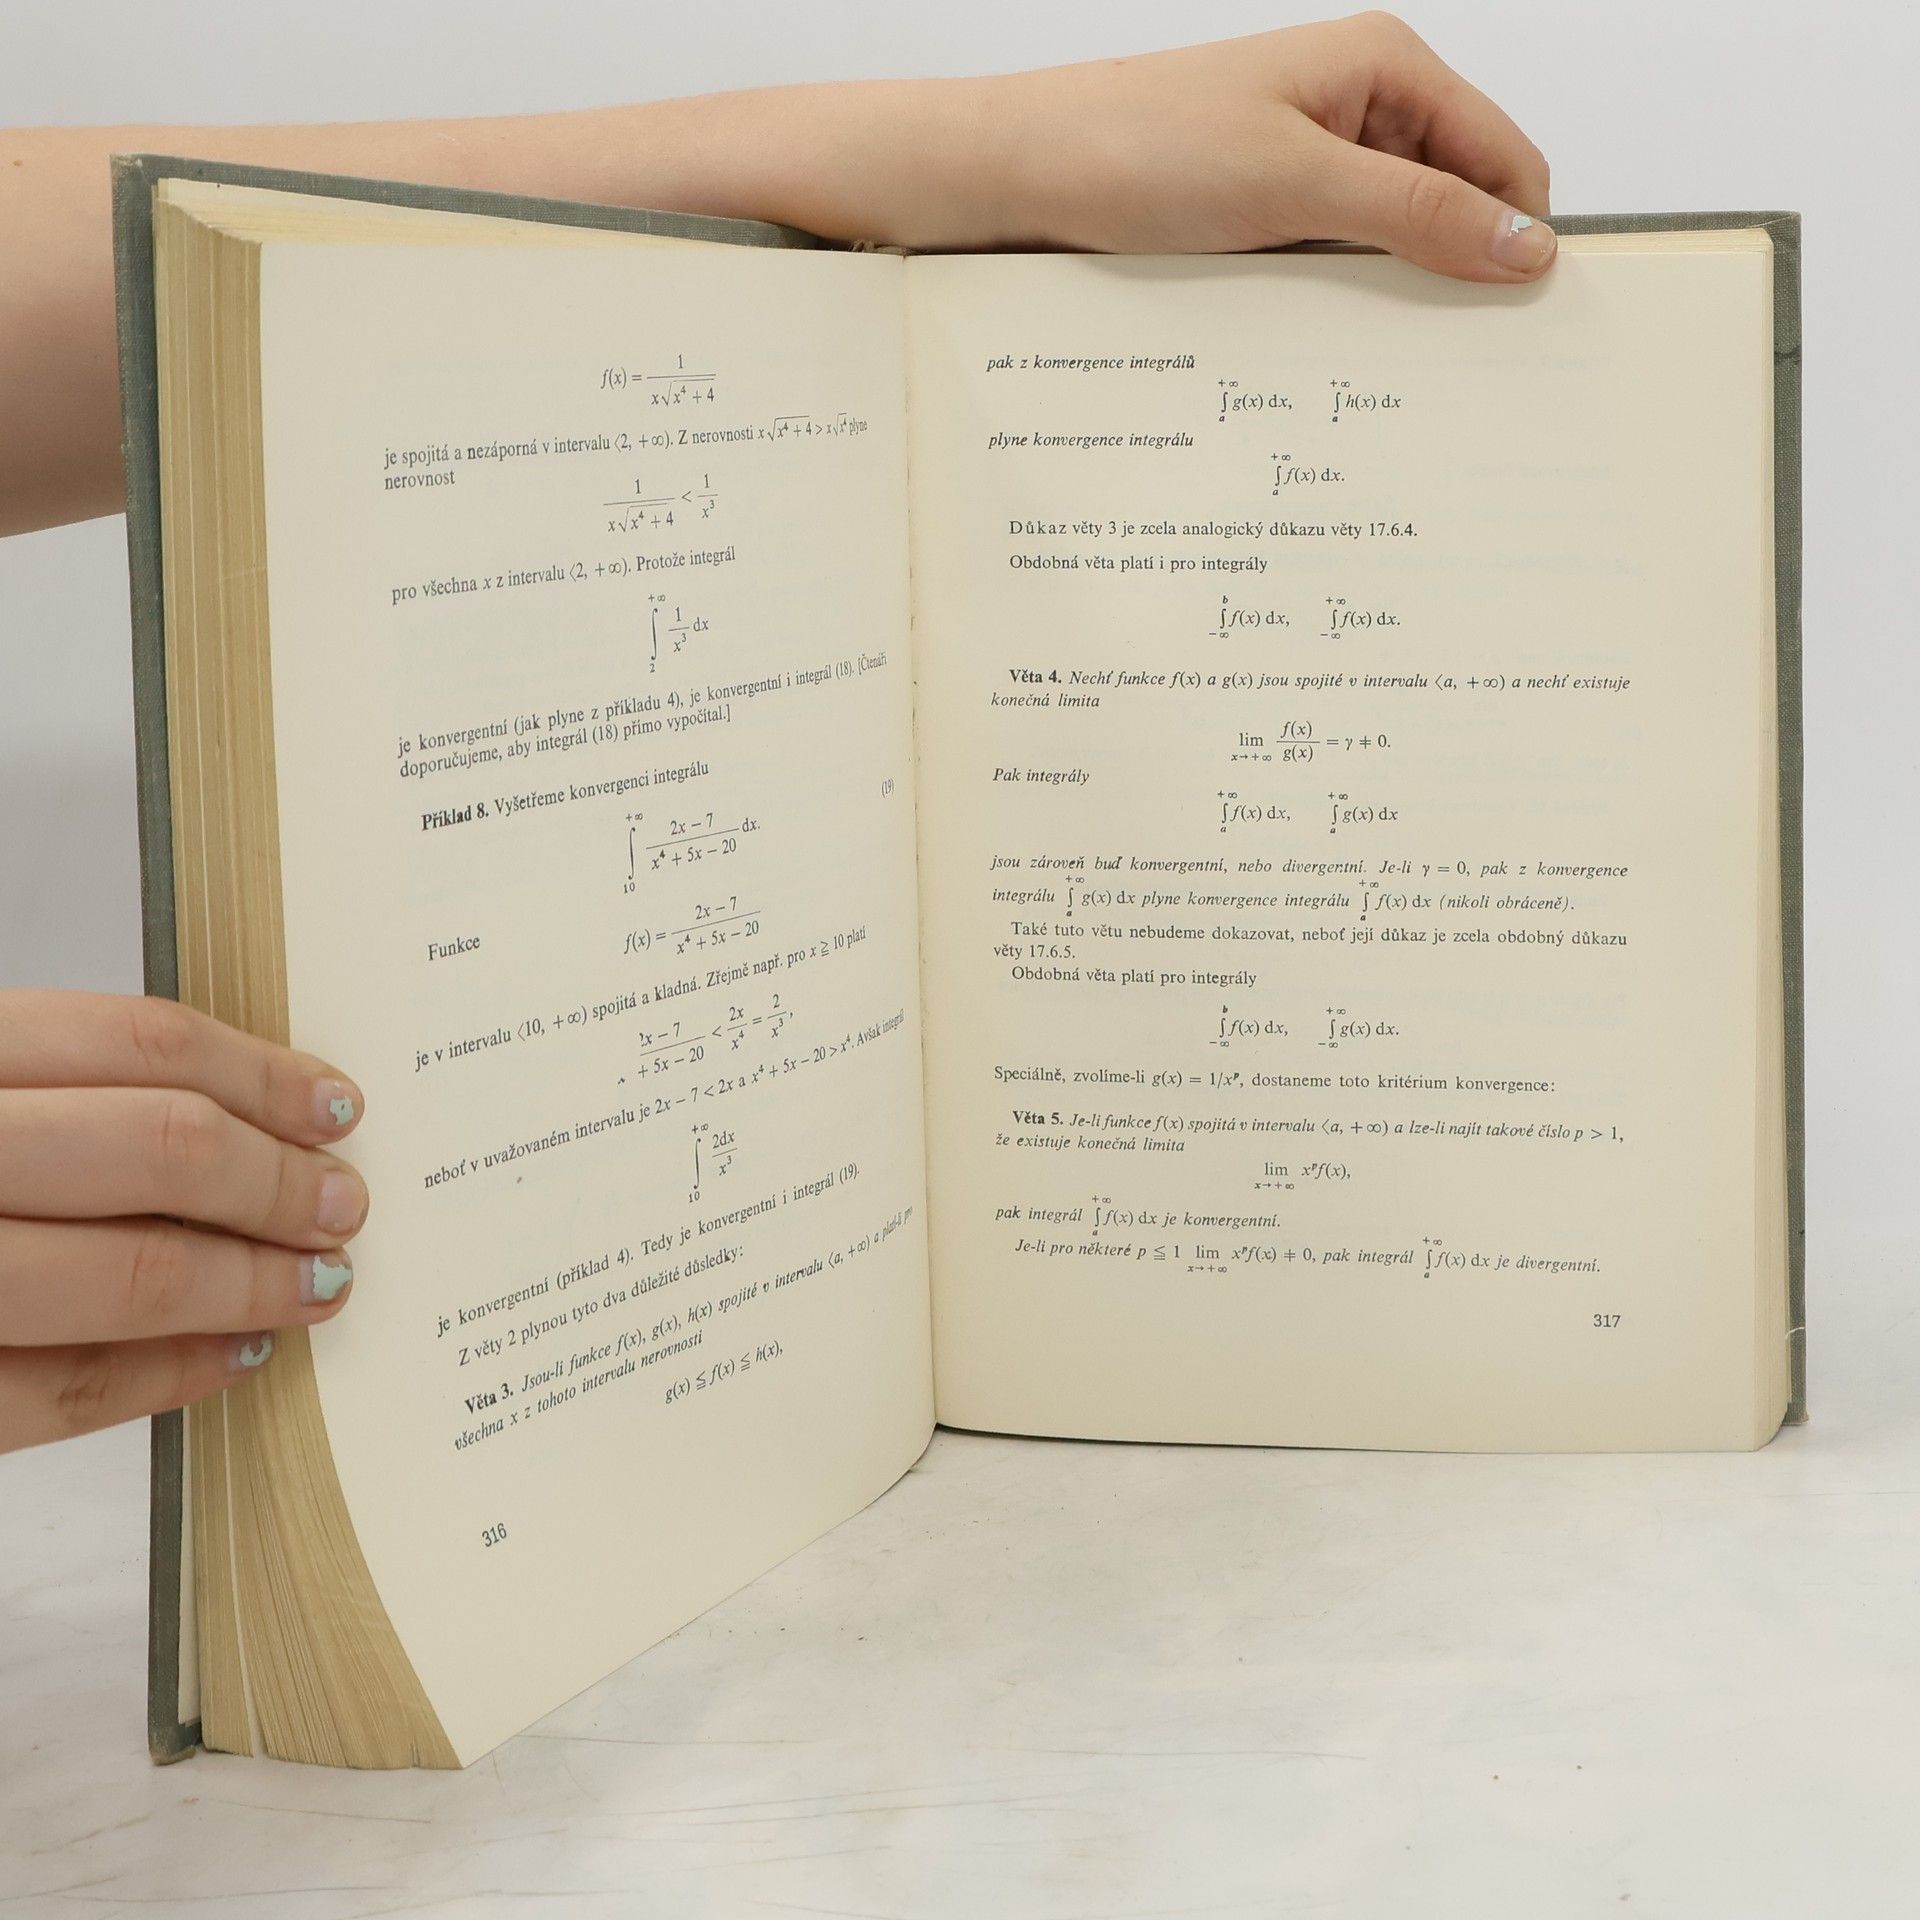 f(x) = 1 / x√x⁴ + 4
je spojitá a nezáporná v intervalu ⟨2, +∞). Z nerovnosti x√x⁴ + 4 > x√x⁴ plyne
nerovnost
1 / x√x⁴ + 4 < 1 / x³
pro všechna x z intervalu ⟨2, +∞). Protože integrál
+∞ ∫ 2 1 / x³ dx
je konvergentní (jak plyne z příkladu 4), je konvergentní i integrál (18). [Čtenáři
doporučujeme, aby integrál (18) přímo vypočítal.]
Příklad 8. Vyšetřeme konvergenci integrálu
+∞ ∫ 10 2x − 7 / x⁴ + 5x − 20 dx. (19)
Funkce f(x) = 2x − 7 / x⁴ + 5x − 20
je v intervalu ⟨10, +∞) spojitá a kladná. Zřejmě např. pro x ≧ 10 platí
2x − 7 / + 5x − 20 < 2x / x⁴ = 2 / x³,
neboť v uvažovaném intervalu je 2x − 7 < 2x a x⁴ + 5x − 20 > x⁴. Avšak integrál
+∞ ∫ 10 2dx / x³
je konvergentní (příklad 4). Tedy je konvergentní i integrál (19).
Z věty 2 plynou tyto dva důležité důsledky:
Věta 3. Jsou-li funkce f(x), g(x), h(x) spojité v intervalu ⟨a, +∞) a platí-li pro
všechna x z tohoto intervalu nerovnosti
g(x) ≦ f(x) ≦ h(x),
316
pak z konvergence integrálů
+∞ ∫ a g(x) dx, +∞ ∫ a h(x) dx
plyne konvergence integrálu
+∞ ∫ a f(x) dx.
Důkaz věty 3 je zcela analogický důkazu věty 17.6.4.
Obdobná věta platí i pro integrály
b ∫ −∞ f(x) dx, +∞ ∫ −∞ f(x) dx.
Věta 4. Nechť funkce f(x) a g(x) jsou spojité v intervalu ⟨a, +∞) a nechť existuje
konečná limita
lim x→+∞ f(x) / g(x) = γ ≠ 0.
Pak integrály
+∞ ∫ a f(x) dx, +∞ ∫ a g(x) dx
jsou zároveň buď konvergentní, nebo divergentní. Je-li γ = 0, pak z konvergence
integrálu +∞ ∫ a g(x) dx plyne konvergence integrálu +∞ ∫ a f(x) dx (nikoli obráceně).
Také tuto větu nebudeme dokazovat, neboť její důkaz je zcela obdobný důkazu
věty 17.6.5.
Obdobná věta platí pro integrály
b ∫ −∞ f(x) dx, +∞ ∫ −∞ g(x) dx.
Speciálně, zvolíme-li g(x) = 1/xᵖ, dostaneme toto kritérium konvergence:
Věta 5. Je-li funkce f(x) spojitá v intervalu ⟨a, +∞) a lze-li najít takové číslo p > 1,
že existuje konečná limita
lim x→+∞ xᵖf(x),
pak integrál +∞ ∫ a f(x) dx je konvergentní.
Je-li pro některé p ≦ 1 lim x→+∞ xᵖf(x) ≠ 0, pak integrál +∞ ∫ a f(x) dx je divergentní.
317